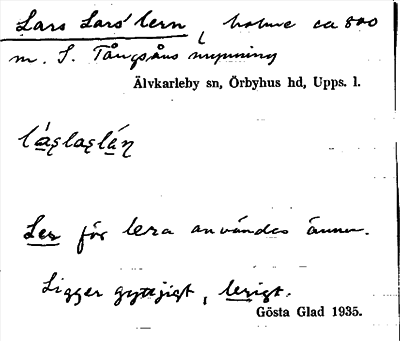 Lars Lars'lern, holme ca 800
m. S. Tångsåns mynning
Älvkarleby sn, Örbyhus hd, Upps. l.
Ler för lera användes ännu.
Ligger gyttjigt, lerigt.
Gösta Glad 1935.